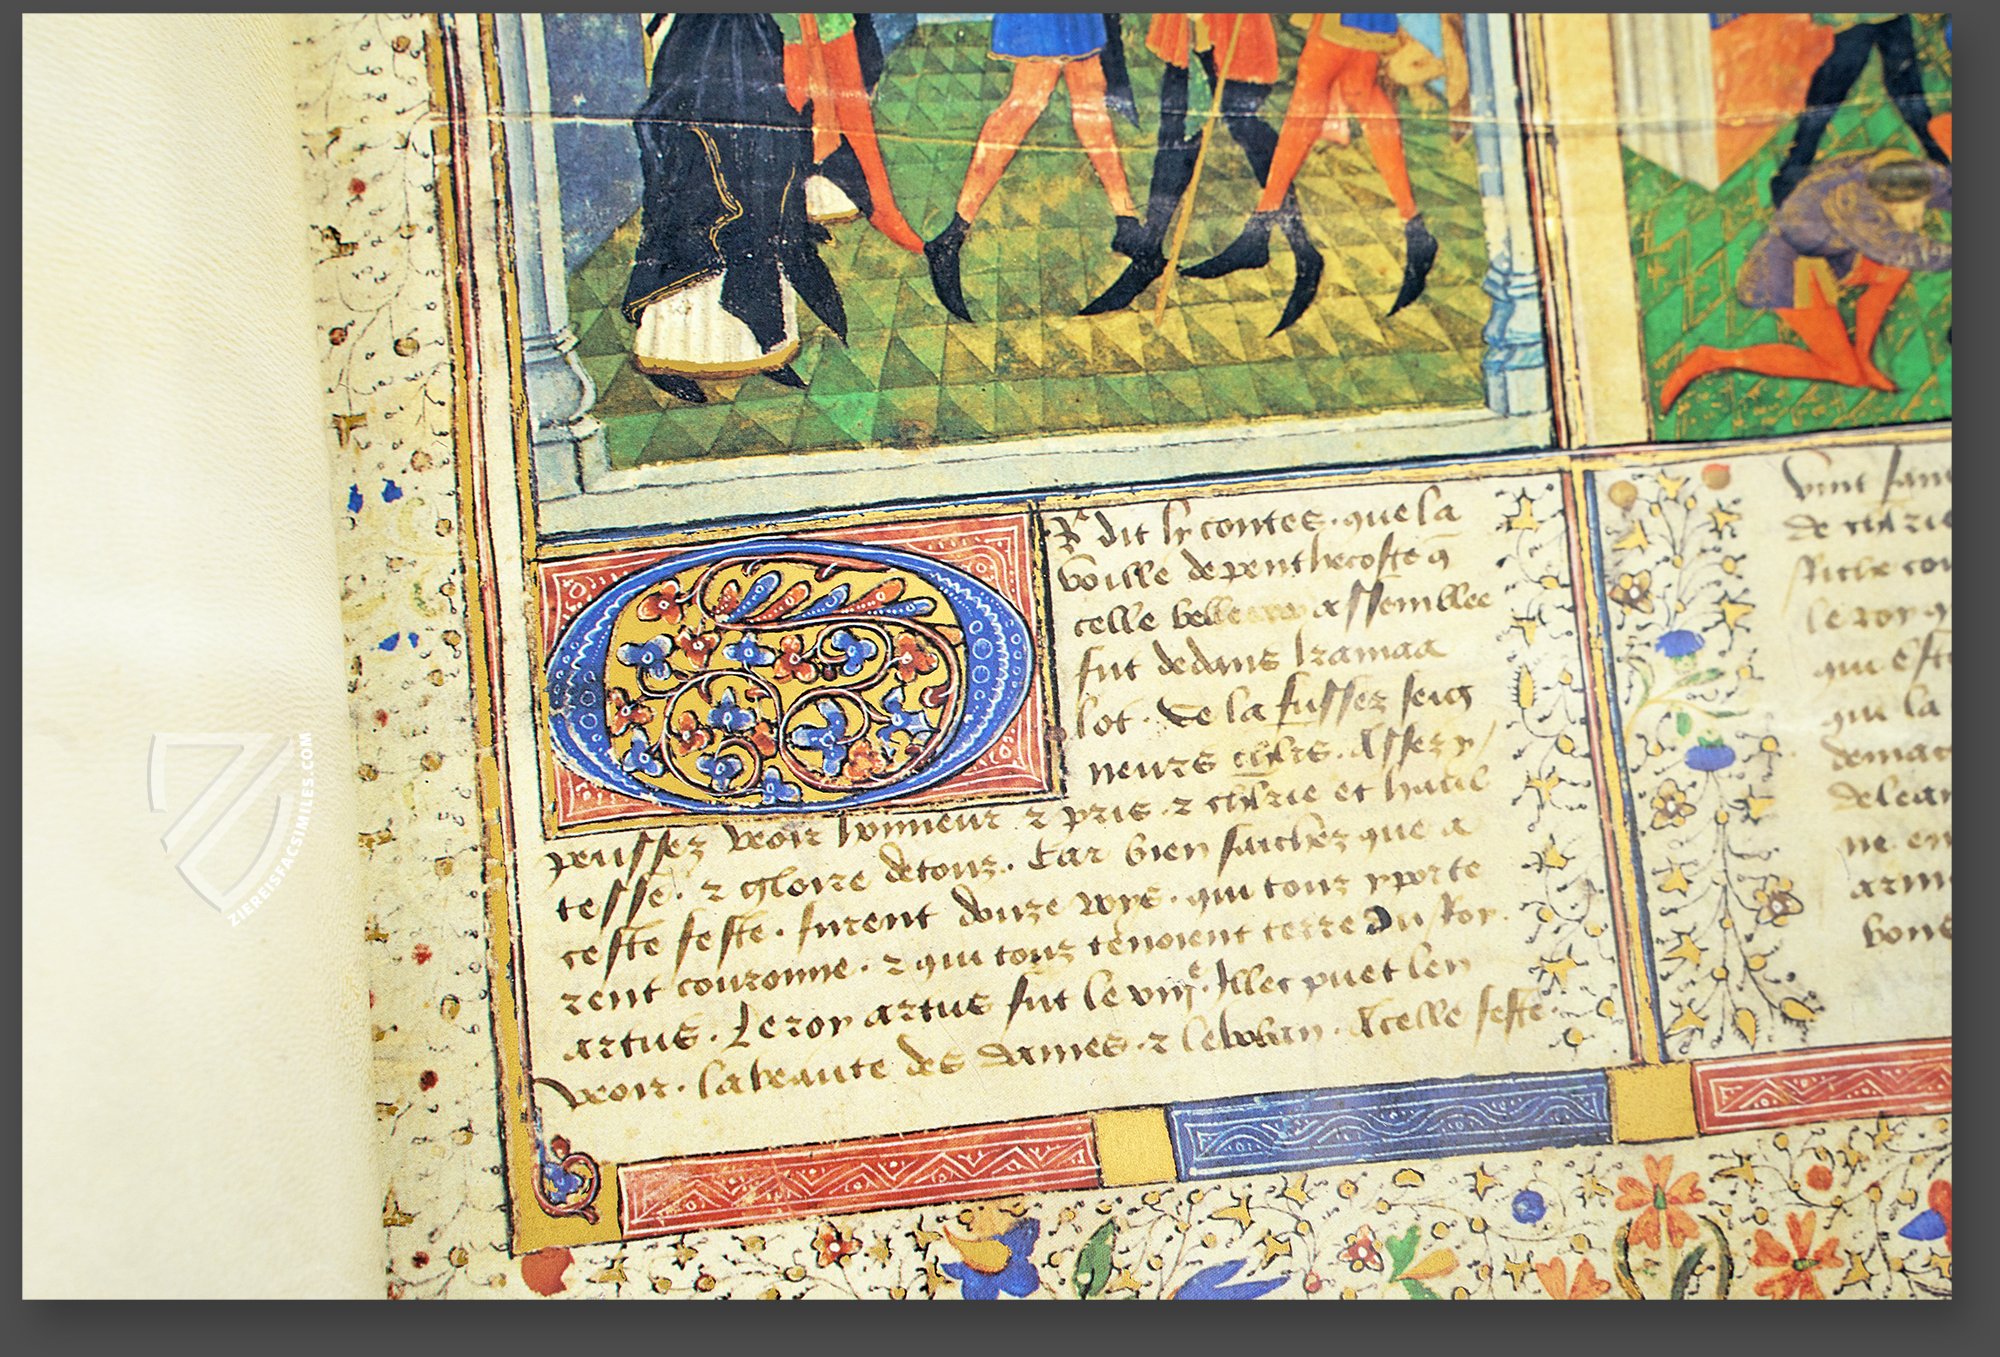 Or dit ly contes. que la
voille de penthecoste q̄
celle belle assemblee
fut dedans kamaa
lot. Se la fussez seig
neurs chl̄rs. Assez y
peussez veoir honneur ⁊ pris. ⁊ chl̄rie et haul
tesse. ⁊ gloire de touz. Car bien saichez que a
ceste feste. furent douze roys. qui touz yporte
rent couronne. ⁊ qui touz tenoient terre du Roy.
artus. Le roy artus fut le viiȷᵉ. Illec puet len
veoir. la beaute des dames. ⁊ Acelle feste.
vint
de chl̄rie
Riche
le roy q
qui est
qui la
demac
ne en
ZIEREISFACSIMILES.COM